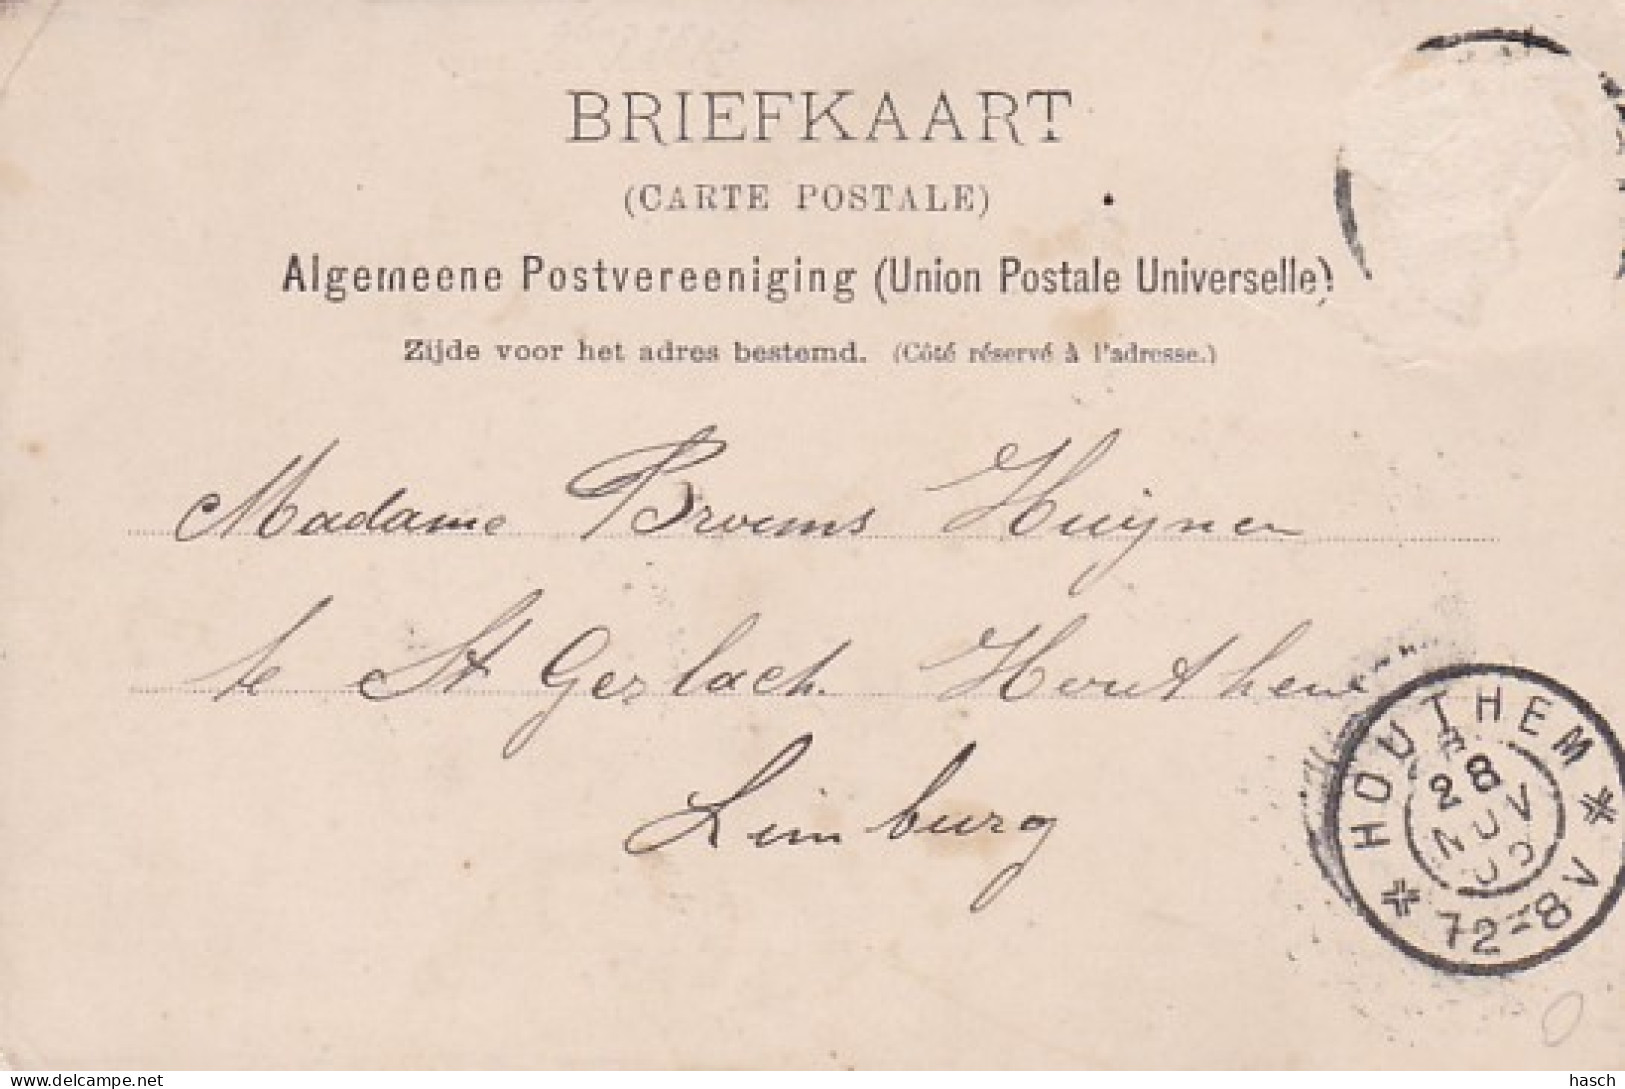 BRIEFKAART
(CARTE POSTALE)
Algemeene Postvereeniging (Union Postale Universelle)
Zijde voor het adres bestemd. (Côté réservé à l'adresse.)
Madame Broems Huijnen
te St Gerlach Houthem
Limburg
HOUTHEM
28
NOV
7 2-8 V
delcampe.net
hasch